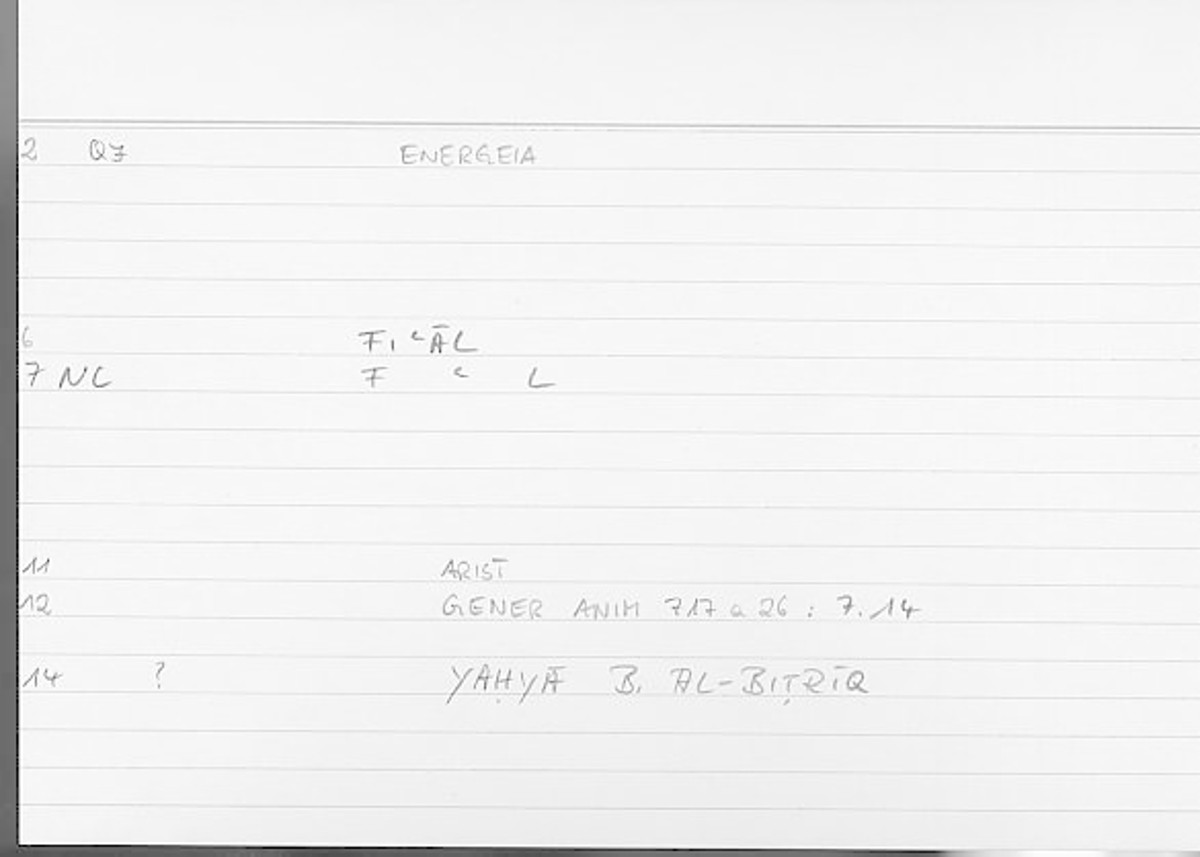 2 Q7 ENERGEIA
6 FIʿĀL
7 NC F ʿ L
11 ARIST
12 GENER ANIM 717 a 26 : 7.14
14 ? YAḤYĀ B. AL-BIṬRĪQ